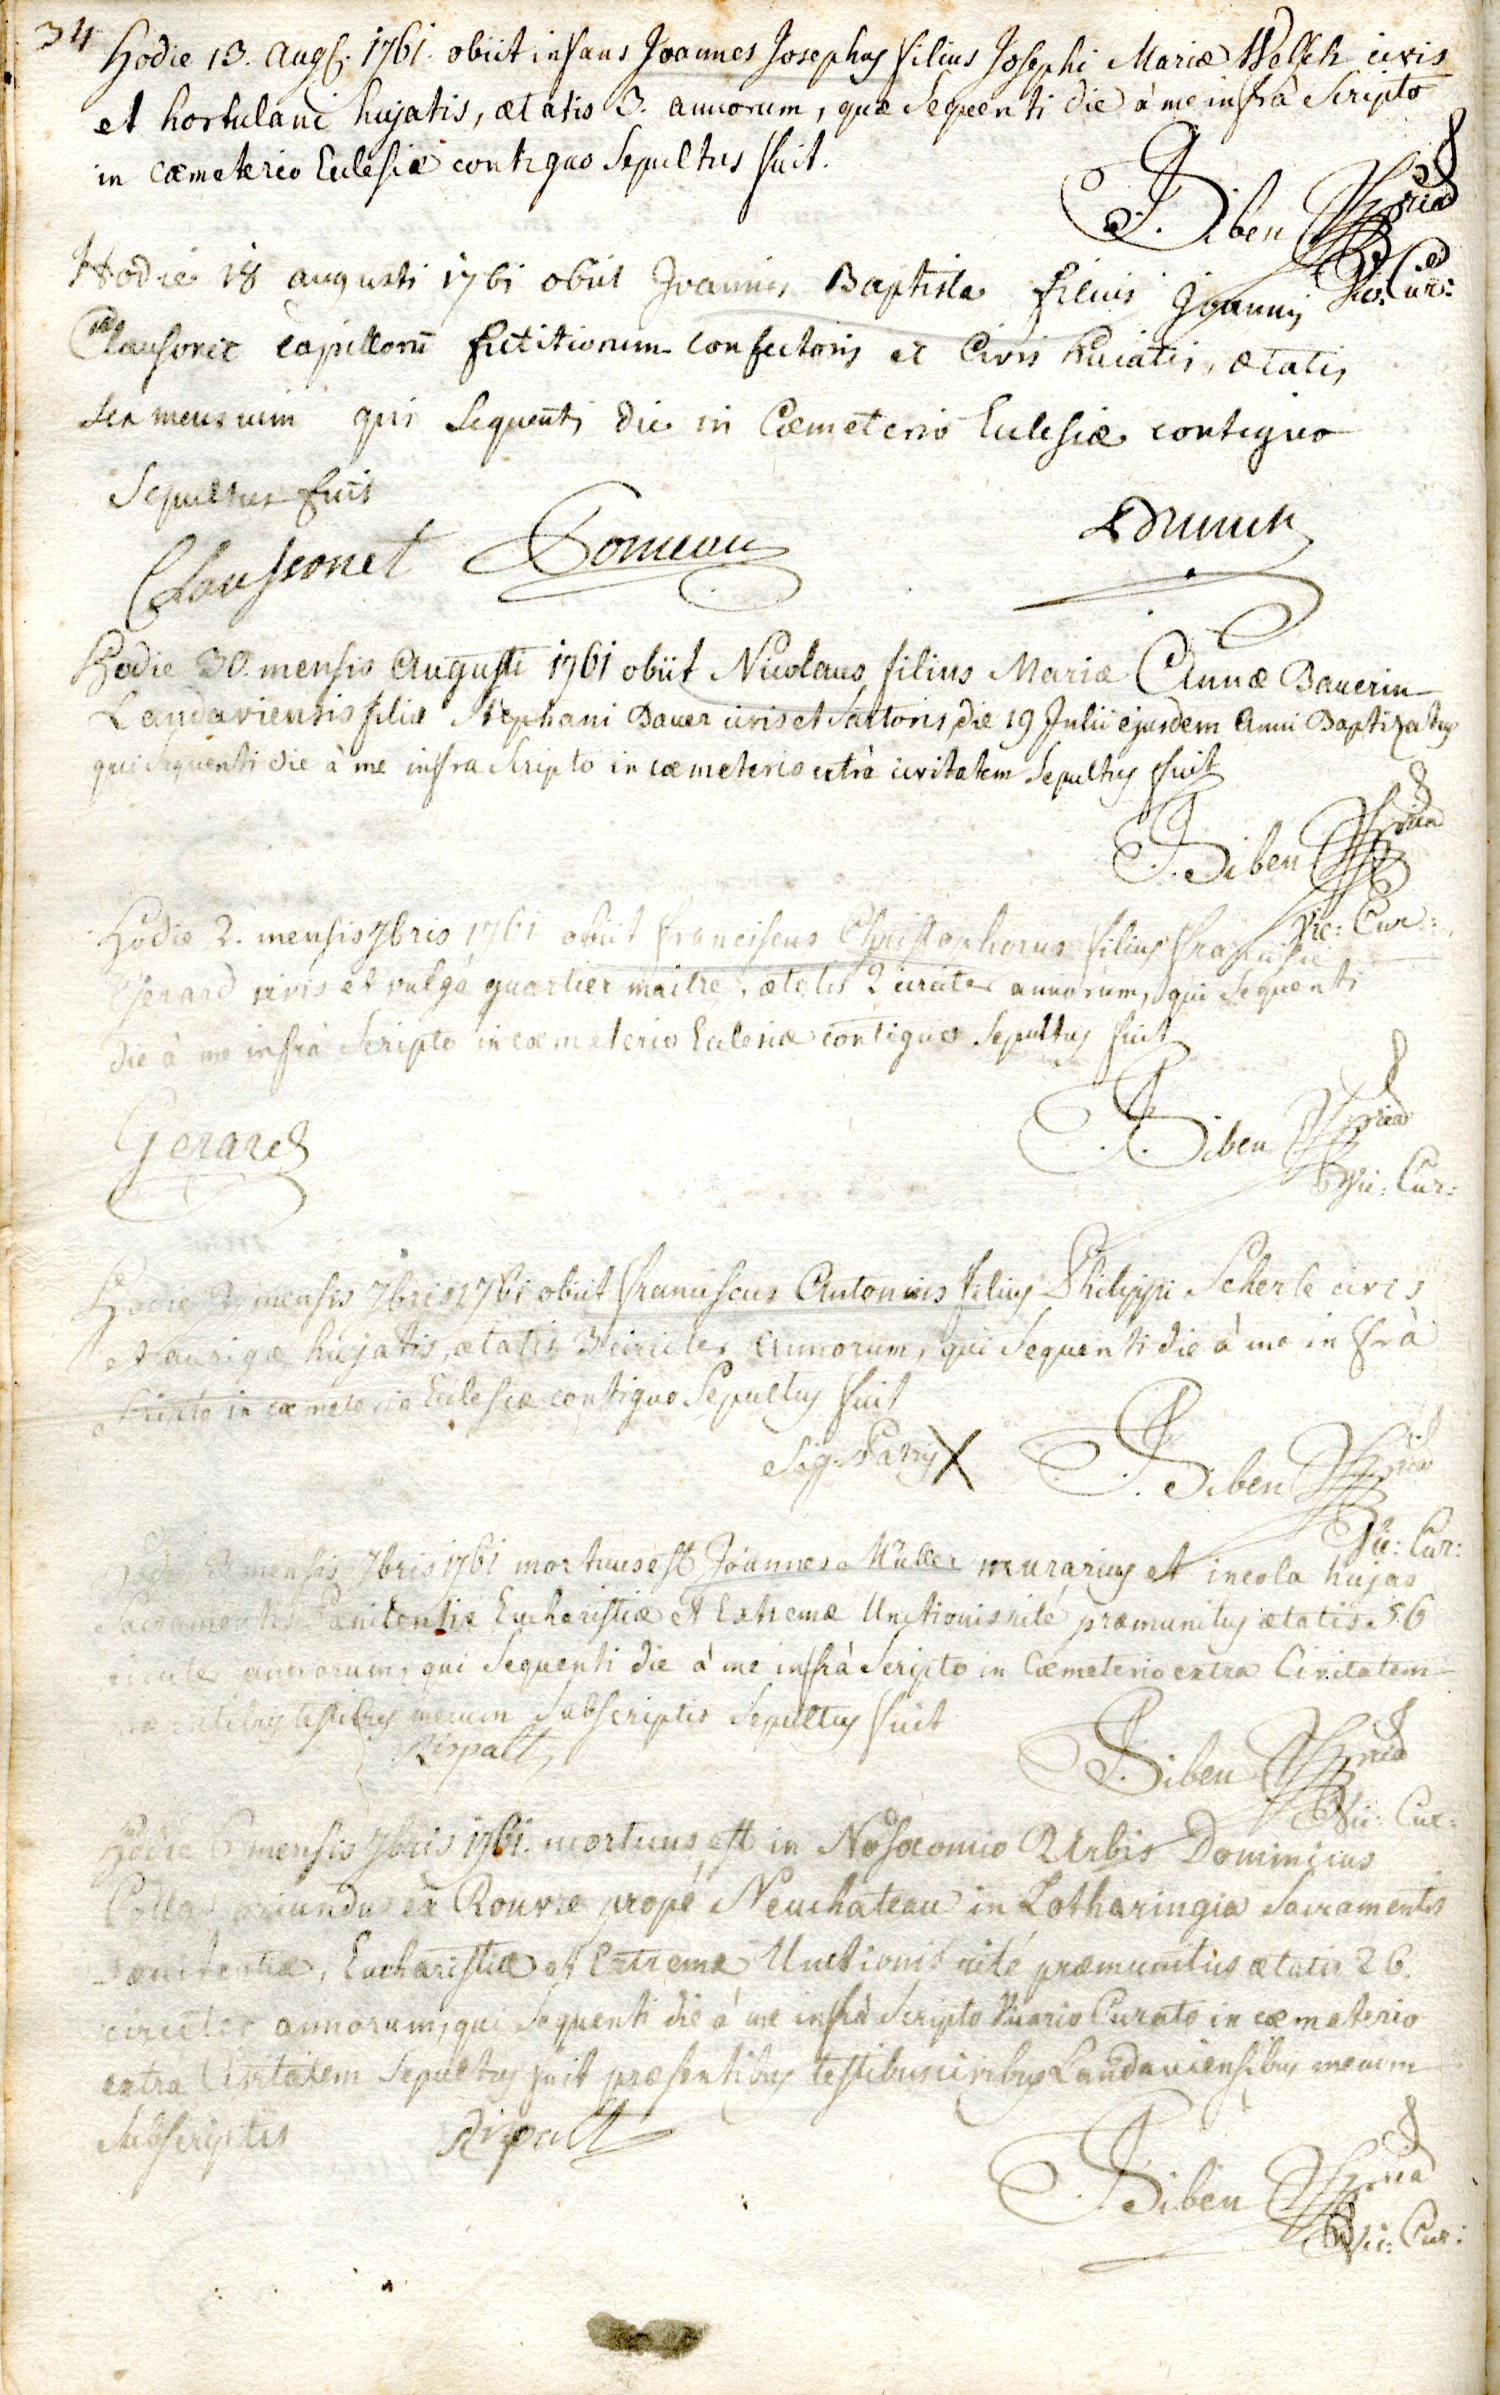 34
Hodie 13. augs. 1761. obiit infans Joannes Josephus filius Josephi Mariæ Welsch civis
et hortulani hujatis, ætatis 3. annorum, quæ sequenti die à me infrà scripto
in cæmeterio Eclesiæ contiguo sepultus fuit.
J. Siben
Vic: Cur:
Hodie 18 augusti 1761 obiit Joannes Baptista filius Joannis
Claussonet capillorū fictitiorum confectoris et Civis huiatis, ætatis
sex mensium qui sequenti die in Cæmeterio Eclesiæ contiguo
sepultus fuit
Claussonet Comeau
Hodie 30. mensis Augusti 1761 obiit Nicolaus filius Mariæ Annæ Bauerin
Landaviensis filiæ Stephani Bauer civis et Sartoris, die 19 Julii ejusdem Anni Baptizatus
qui sequenti die à me infra scripto in cæmeterio extrà civitatem sepultus fuit
J. Siben
Vic: Cur:
Hodie 2. mensis 7bris 1761 obiit franciscus Christophorus filius francisci
Gerard civis et vulgò quartier maitre, ætatis 2 circiter annorum, qui sequenti
die à me infrà scripto in cæmeterio Eclesiæ contiguo sepultus fuit
J. Siben
Gerard
Vic: Cur:
Hodie mensis 7bris 1761 obiit franciscus Antonius filius Philippi Scherle civis
et aurigæ hujatis, ætatis 3 circiter annorum, qui sequenti die à me infrà
scripto in cæmeterio Eclesiæ contiguo sepultus fuit
Sig. Patris X J. Siben
Vic: Cur:
Hodie mensis 7bris 1761 mortuus est Joannes Müller murarius et incola hujas
Sacramentis Pænitentiæ Eucharistiæ et Extremæ Unctionis rité præmunitus ætatis 56
circiter annorum, qui sequenti die à me infrà scripto in Cæmeterio extra Civitatem
præsentibus testibus mecum subscriptis sepultus fuit
Rispalt J. Siben
Vic: Cur:
Hodie 6 mensis 7bris 1761. mortuus est in Nosocomio Urbis Dominicus
Collas oriundus ex Rouvre propé Neuchateau in Lotharingia Sacramentis
Pænitentiæ, Eucharistiæ et Extremæ Unctionis rité præmunitus ætatis 26.
circiter annorum, qui sequenti die à me infrà scripto Vicario Curato in cæmeterio
extra Civitatem sepultus fuit præsentibus testibus civibus Landaviensibus mecum
subscriptis Rispalt
J. Siben
Vic: Cur: